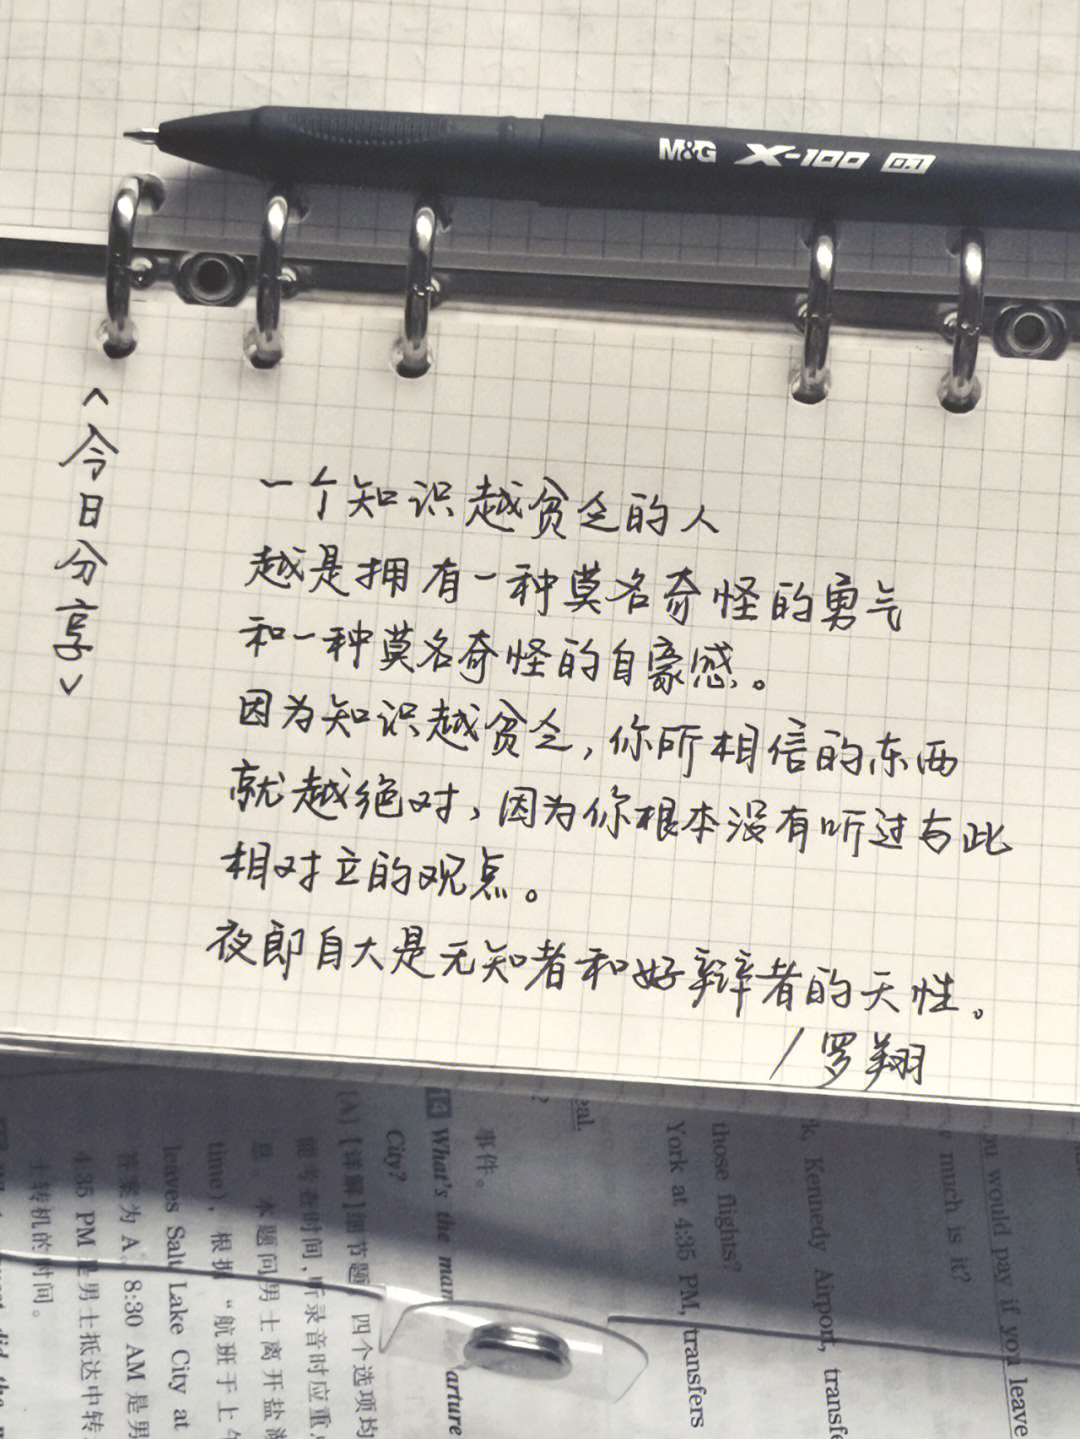 M&G X-100 0.1
<今日分享>
一个知识越贫乏的人
越是拥有一种莫名奇怪的勇气
和一种莫名奇怪的自豪感。
因为知识越贫乏,你所相信的东西
就越绝对,因为你根本没有听过与此
相对立的观点。
夜郎自大是无知者和好辩者的天性。
/罗翔
ou would pay if you leave
much is it?
k, Kennedy Airport, transfe
those flights?
York at 4:35 PM, transfers
eal.
事件。
14 What's the man
arture
City?
(A)【详解】细节题。四个选项均
能考卷时间,听录音时应重
息。本题问男士离开盐湖
time),根据“航班于上午
leaves Salt Lake City at
答案为A。8:30 AM是男
4:35 PM是男士抵达中转
士转机的时间。